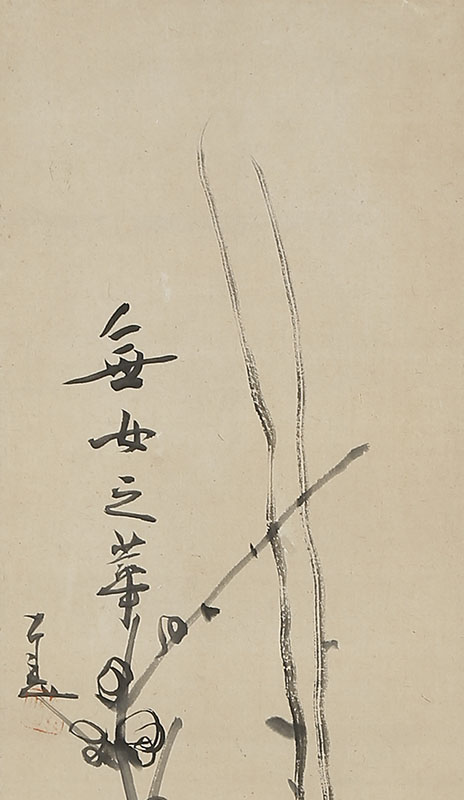 無女之華